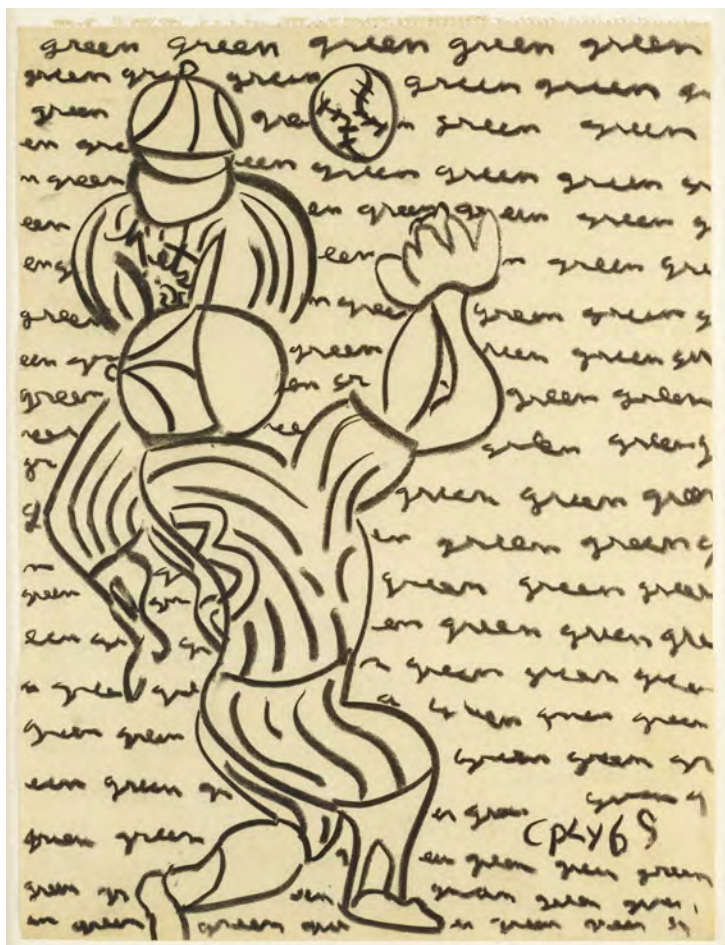 green green green green green
green gre green green green g
green gre n green green
en gre een green green green gr
n green en green gr en green g
een Mets een
eng n green gre
green n gree green green g
een gre green reen green gr
green en gr green green
ree green green g
gr green green green
g en green green g
n green green green
green gr en green green gre
een gr gr n green green green
n green gre green green
green green green gr
een green gr en green green g
CPLY 69
green green en green green green
green gr een green green green
en green green gre en green green gr